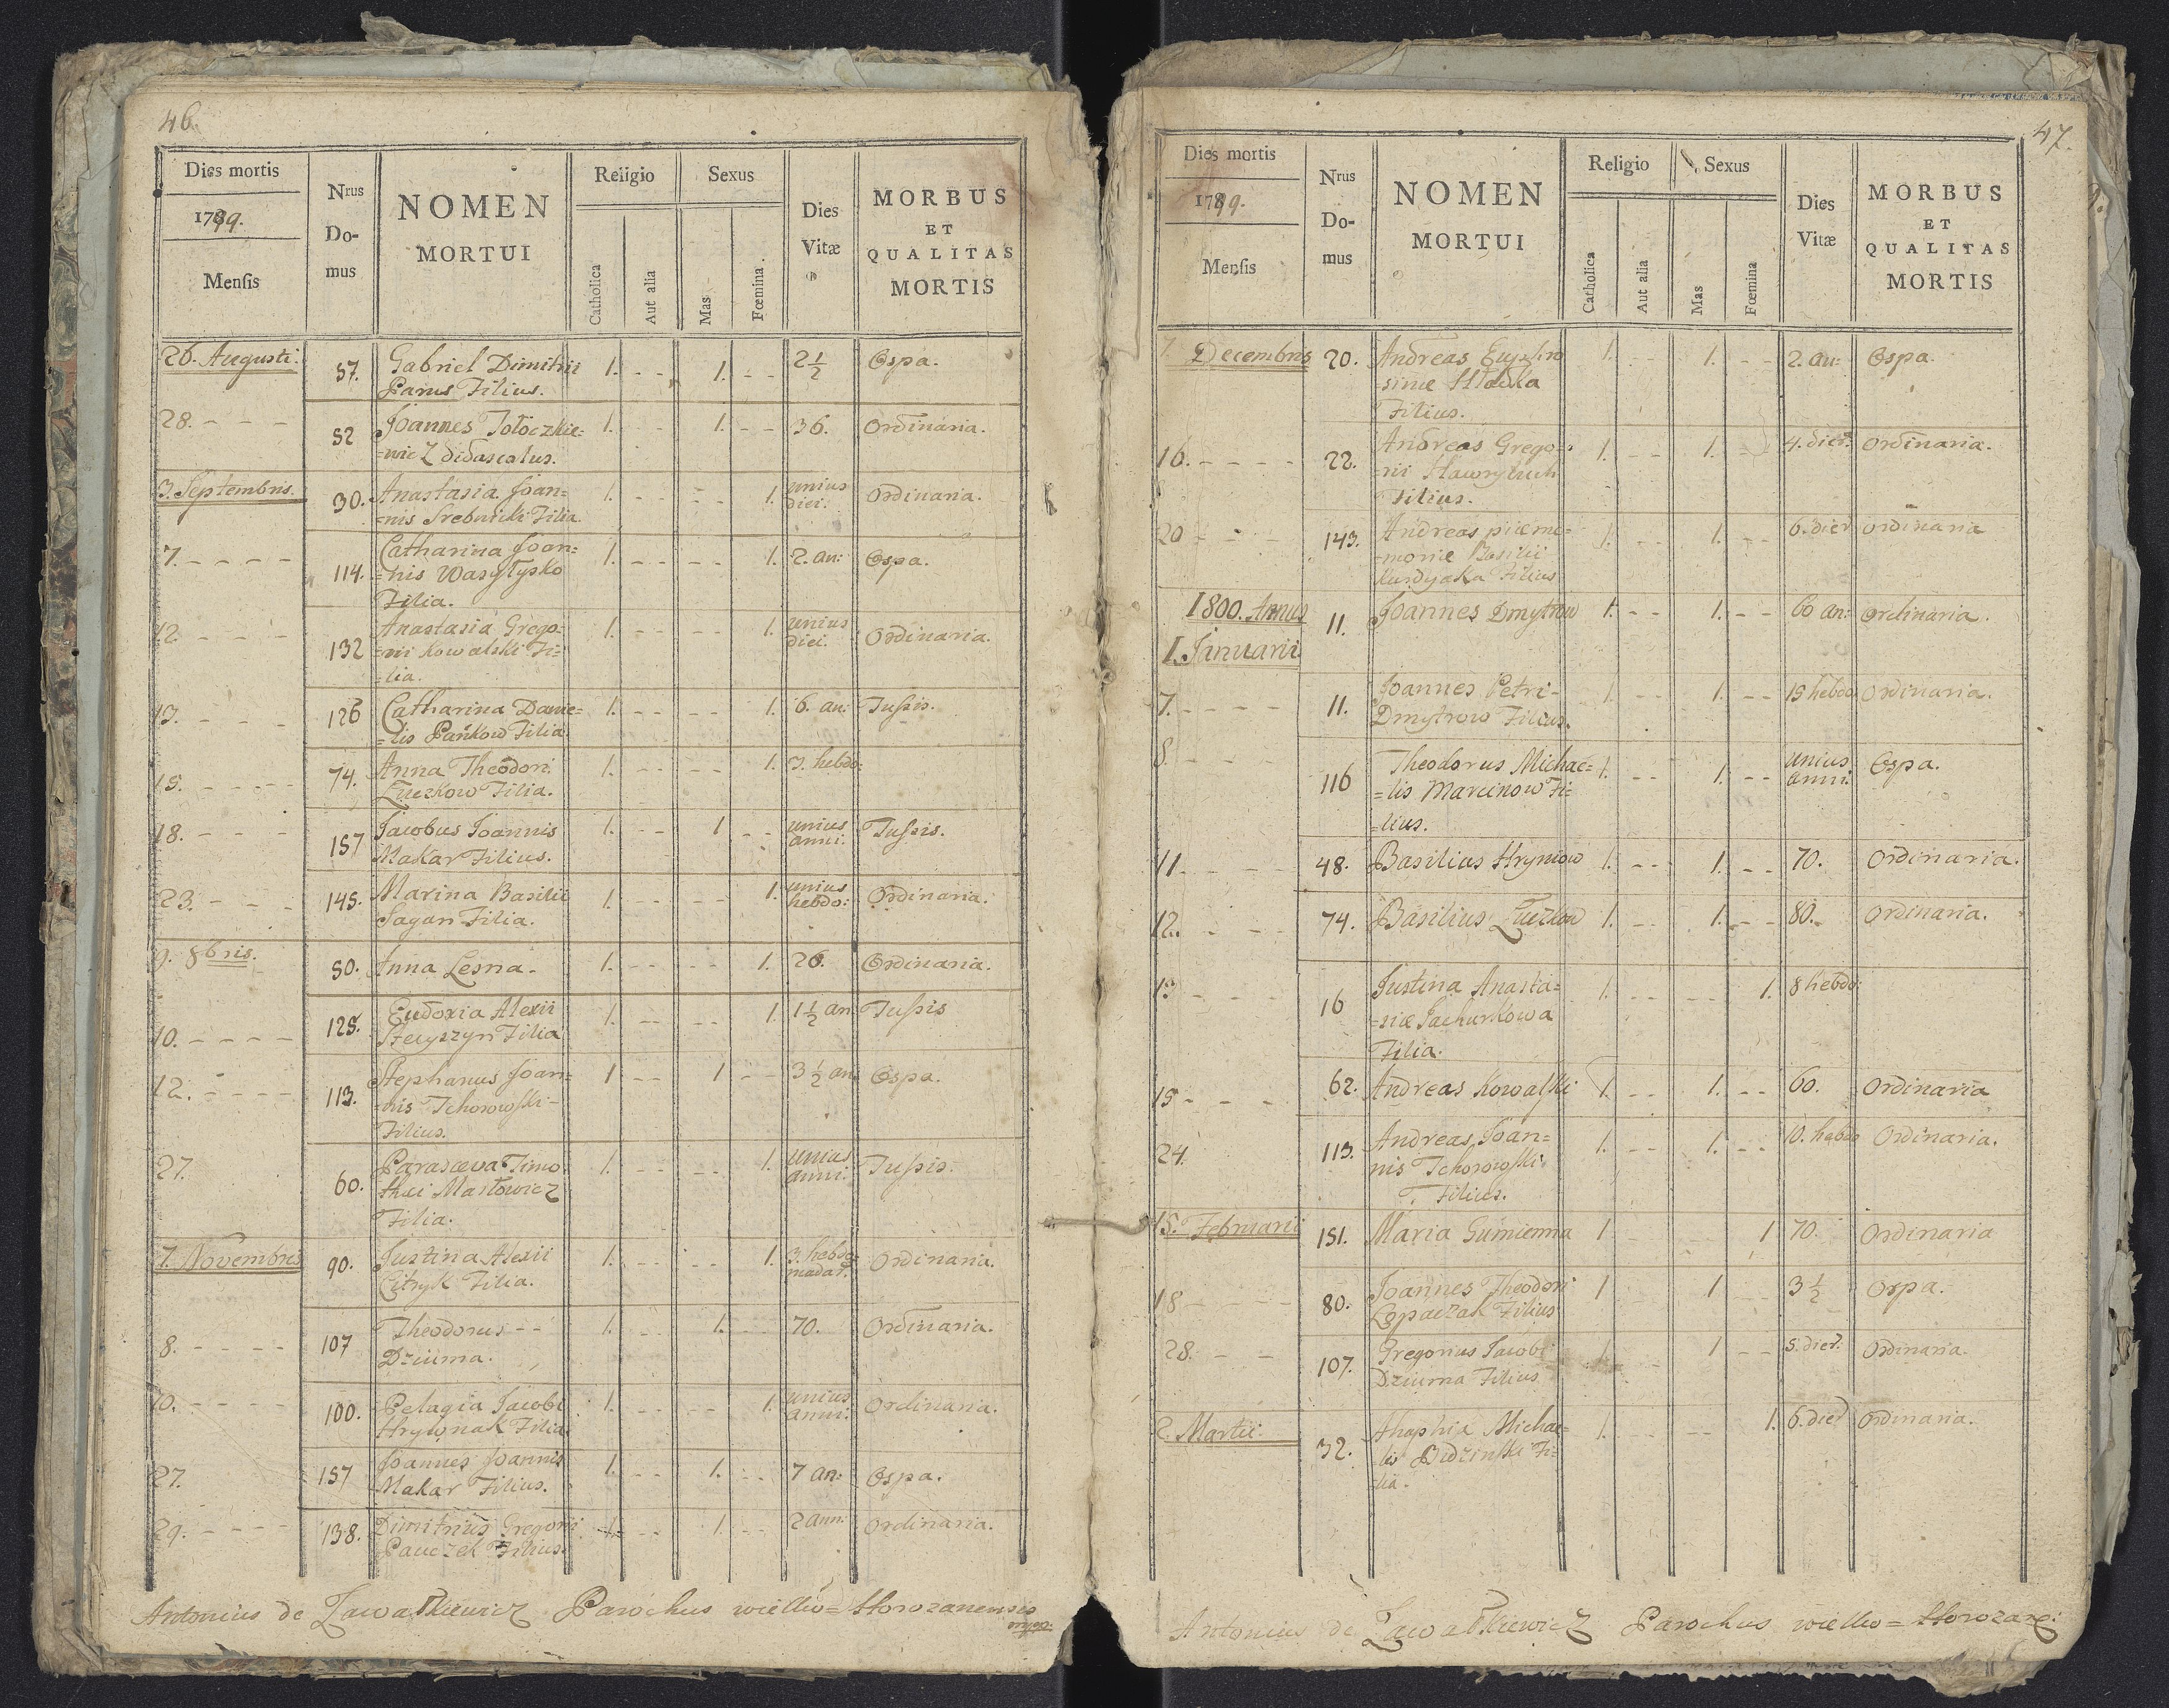 46.
Dies mortis
1799.
Mensis
Nrus
Do-
mus
NOMEN
MORTUI
Religio
Catholica
Aut alia
Sexus
Mas
Fœmina
Dies
Vitæ
MORBUS
ET
QUALITAS
MORTIS
26. Augusti. 57. Gabriel Dimitrii 1. - - 1. - - 2 1/2 Ospa.
Parus Filius.
28. - - - 52 Joannes Tołoczkie= 1. - - 1. - - 36. Ordinaria.
=wicz didascalus.
3. Septembris. 30. Anastasia Joan= 1. - - - - 1. unius diei. Ordinaria.
=nis Srebnicki Filia.
7. - - - - 114. Catharina Joan= 1. - - - - 1. 2. an: Ospa.
=nis Wasylysko
Filia.
12. - - - - 132 Anastasia Grego= 1. - - - - 1. unius diei. Ordinaria.
=rii Kowalski Fi=
=lia.
13. - - - - 126 Catharina Danie= 1. - - - - 1. 6. an: Tussis.
=lis Pańkow Filia
15. - - - - 74. Anna Theodori 1. - - - - 1. 3. hebdo:
Łuczkow Filia.
18. - - - 157 Jacobus Joannis 1. - - 1 - - unius anni. Tussis.
Makar Filius.
23. - - - 145. Marina Basilii 1. - - - - 1. unius hebdo: Ordinaria.
Sagan Filia.
9. 8bris. 50. Anna Lesna. 1. - - - - 1. 26. Ordinaria.
10. - - - - 125. Eudoxia Alexii 1. - - - - 1. 1 1/2 an Tussis
Stecyszyn Filia
12. - - - - 113. Stephanus Joan= 1 - - 1 - - 3 1/2 an. Ospa.
=nis Tchorowski
Filius.
27. 60. Parasceva Timo= 1. - - - - 1. unius anni. Tussis.
thei Masłowicz
Filia.
7. Novembris 90. Justina Alexii 1. - - - - 1. 3. hebdo= madar. Ordinaria.
Citryk Filia.
8. - - - - 107 Theodorus - - 1. - - 1. 70. Ordinaria.
Dziuma.
10. - - - - 100. Pelagia Jacobi 1. - - - - 1. unius anni. Ordinaria.
Filia.
27. 157 Joannes Joannis 1. - - 1. - - 7 an: Ospa.
Makar Filius.
29. - - - - 138. Dimitrius Gregorii 1. - - 1. - - 2 ann: Ordinaria.
Pauczek Filius.
Antonius de Zawałkiewicz Parochus wielko=Horozanensis
47.
Dies mortis
1799.
Mensis
Nrus
Do-
mus
NOMEN
MORTUI
Religio
Catholica
Aut alia
Sexus
Mas
Fœmina
Dies
Vitæ
MORBUS
ET
QUALITAS
MORTIS
7. Decembris 20. Andreas Euphro 1. - - 1. - - 2. an: Ospa.
=sinæ
Filius.
16. - - - - 22. Andreas Grego= 1. - - 1. - 4. dier: Ordinaria.
=rii Hawryluch
Filius.
20 - - - 143. Andreas piæ me= 1. - - 1. - - 6. dier ordinaria
=moriæ Basilii
Kurdydka Filius
1800. Annus 11. Joannes Dmytrow 1. - - 1. - - 60 an: Ordinaria.
1. Januarii
7. - - - - 11. Joannes Petri 1. - - 1. - - 15 hebdo Ordinaria.
Dmytrow Filius.
8. - - - 116 Theodorus Michae= 1. - - 1. - - unius anni. Ospa.
=lis Marcinow Fi=
=lius.
11. - - - 48. Basilius Hryniow 1. - - 1. - - 70. Ordinaria.
12. - - - 74. Basilius Łuczkow 1. - - 1. - - 80. Ordinaria.
13 - - - 16 Justina Anasta= 1. - - - - 1. 8 hebdo:
=siæ Jachurkowa
Filia.
15 - - - 62. Andreas Kowalski 1. - - 1. - - 60. Ordinaria
24. 113. Andreas Joan= 1. - - 1. - - 10. hebdo Ordinaria.
nis Tchorowski
Filius.
15. Februarii 151. Maria Gumienna 1 1 70. Ordinaria
18 - - - 80. Joannes Theodori 1 1 3 1/2 Ospa.
Lopaczak Filius
28. - - 107. Gregorius Jacobi 1. - - 1 - - 5. dier. Ordinaria.
Dziuma Filius
2. Martii. 32. Ahaphia Michae= 1. - - - - 1. 6. dier Ordinaria.
lis Budzinski Fi=
lia.
Antonius de Zawałkiewicz Parochus wielko=Horozane: